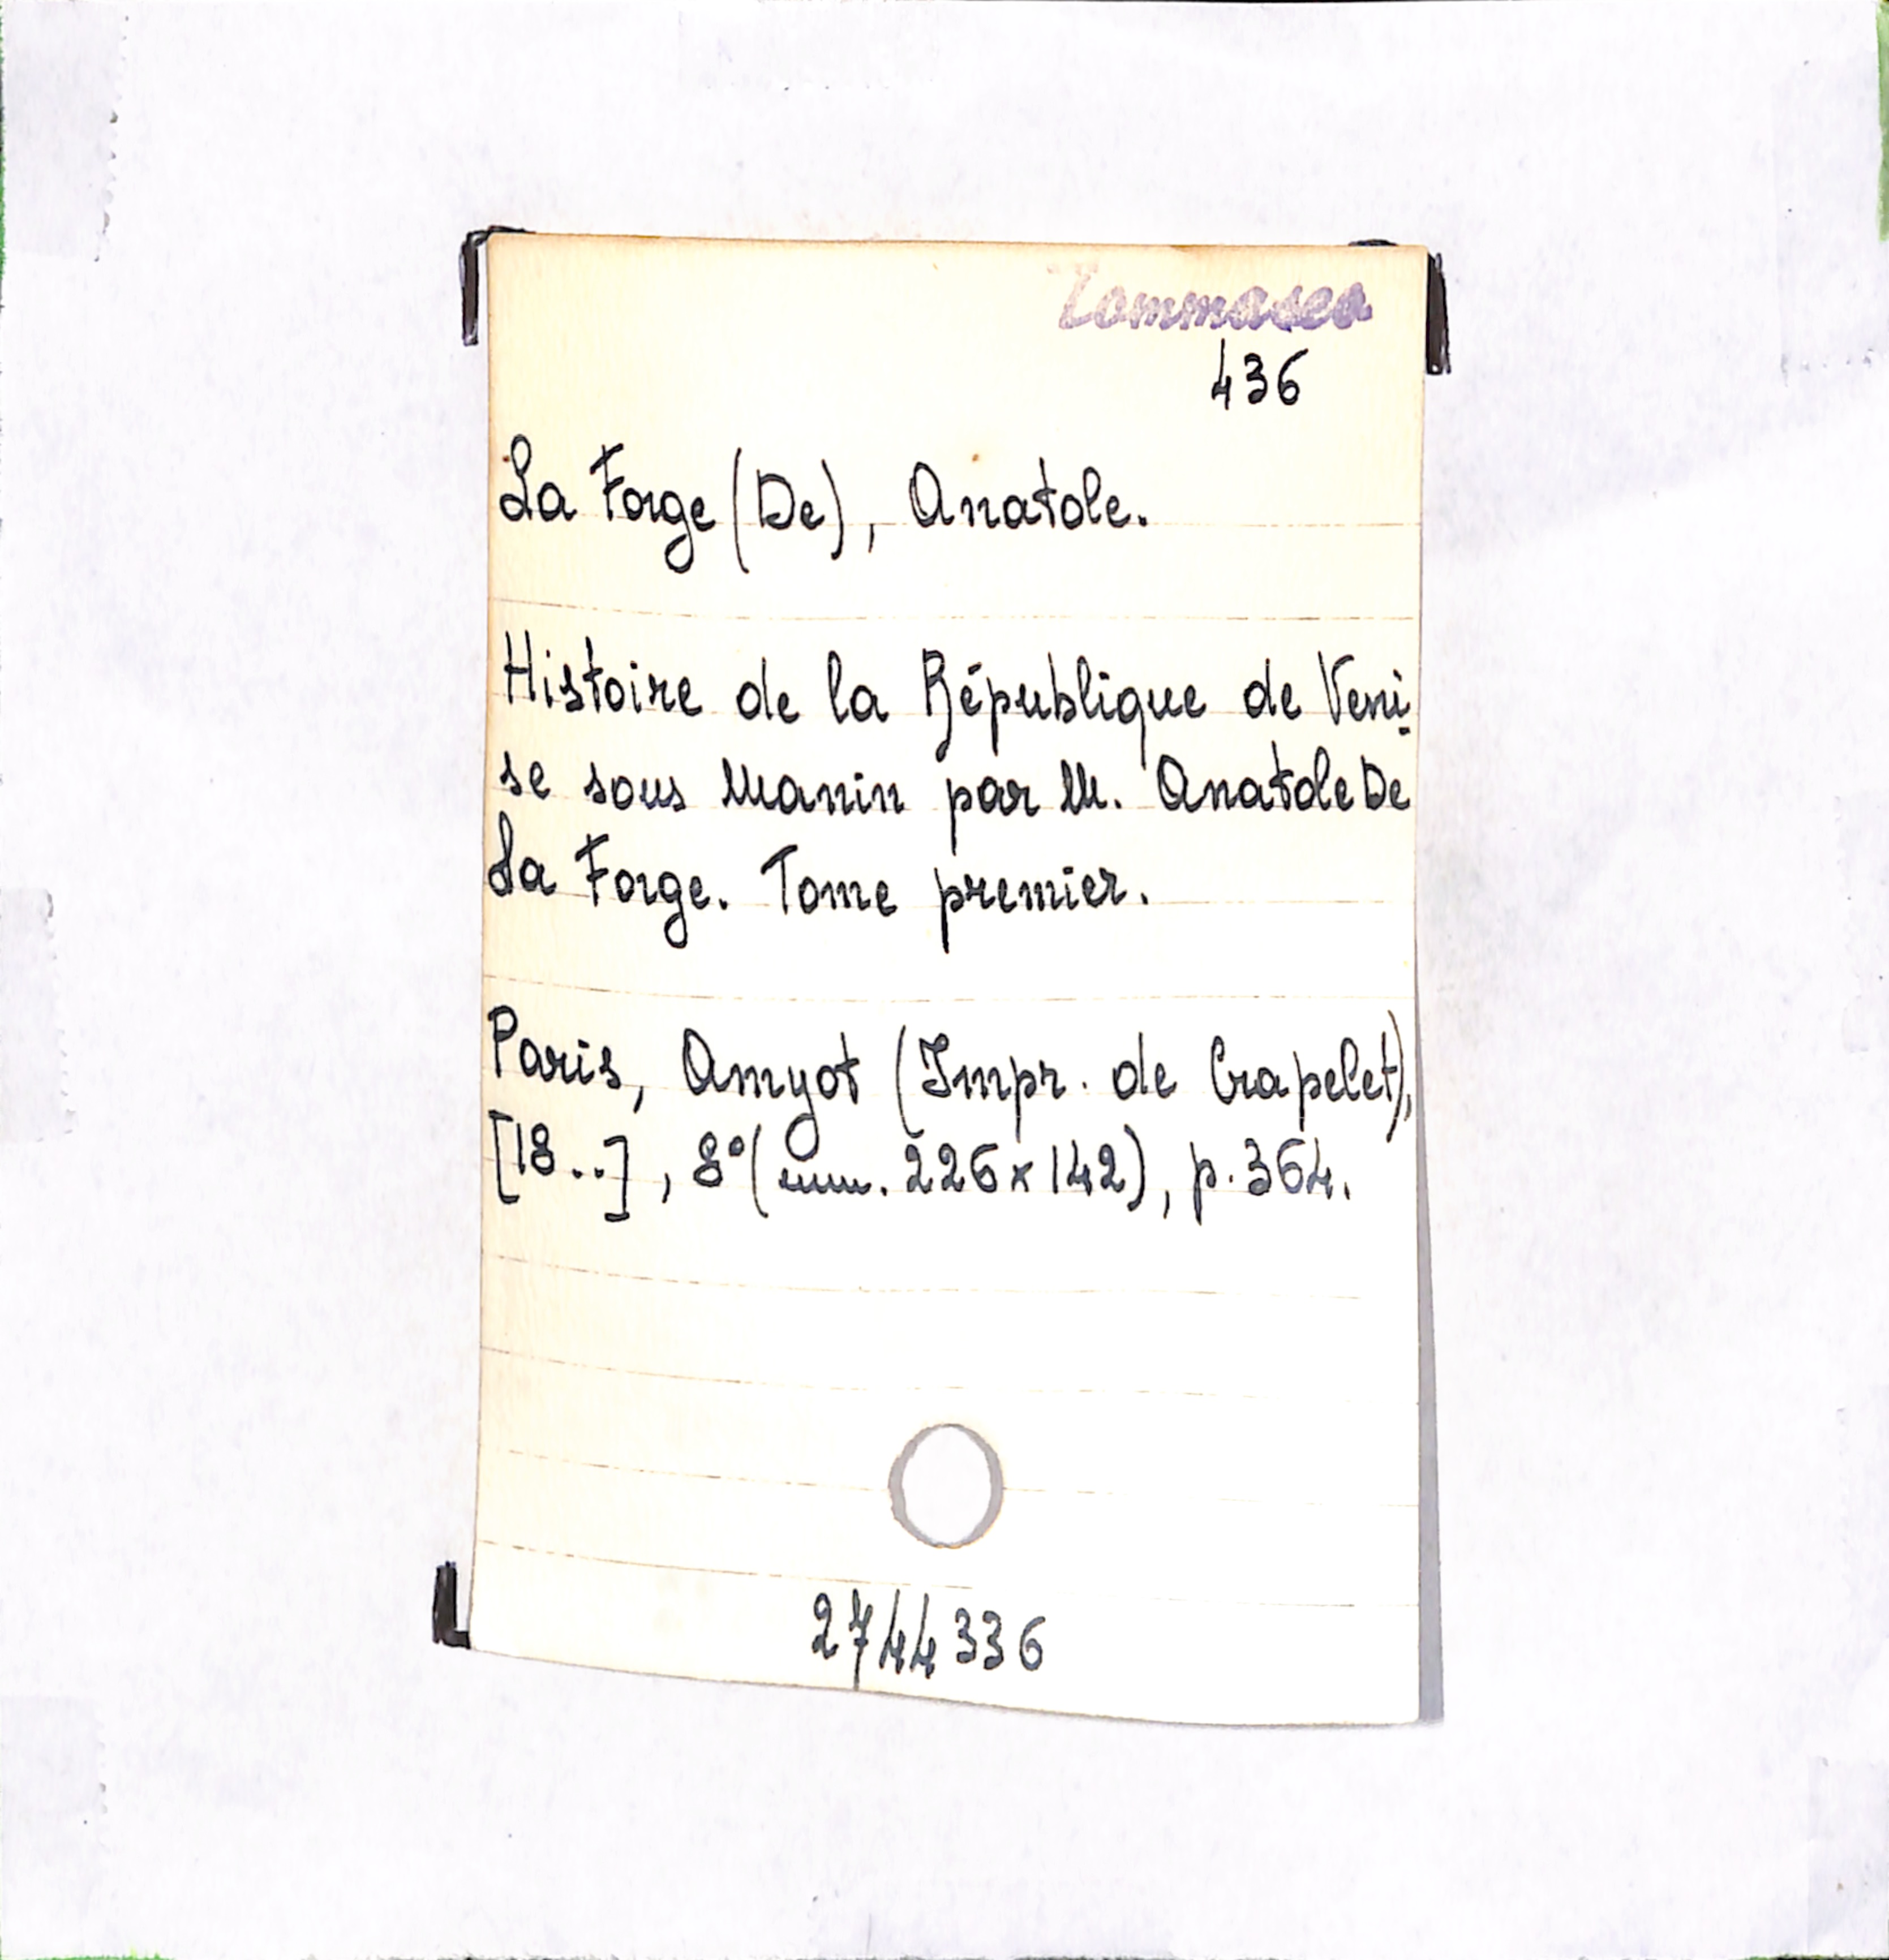 Tommaseo
436
La Forge (De), Anatole.
Histoire de la République de Veni-
se sous Manin par M. Anatole De
La Forge. Tome premier.
Paris, Amyot (Impr. de Crapelet),
[18..], 8° (mm. 226 x 142), p. 364.
2744336